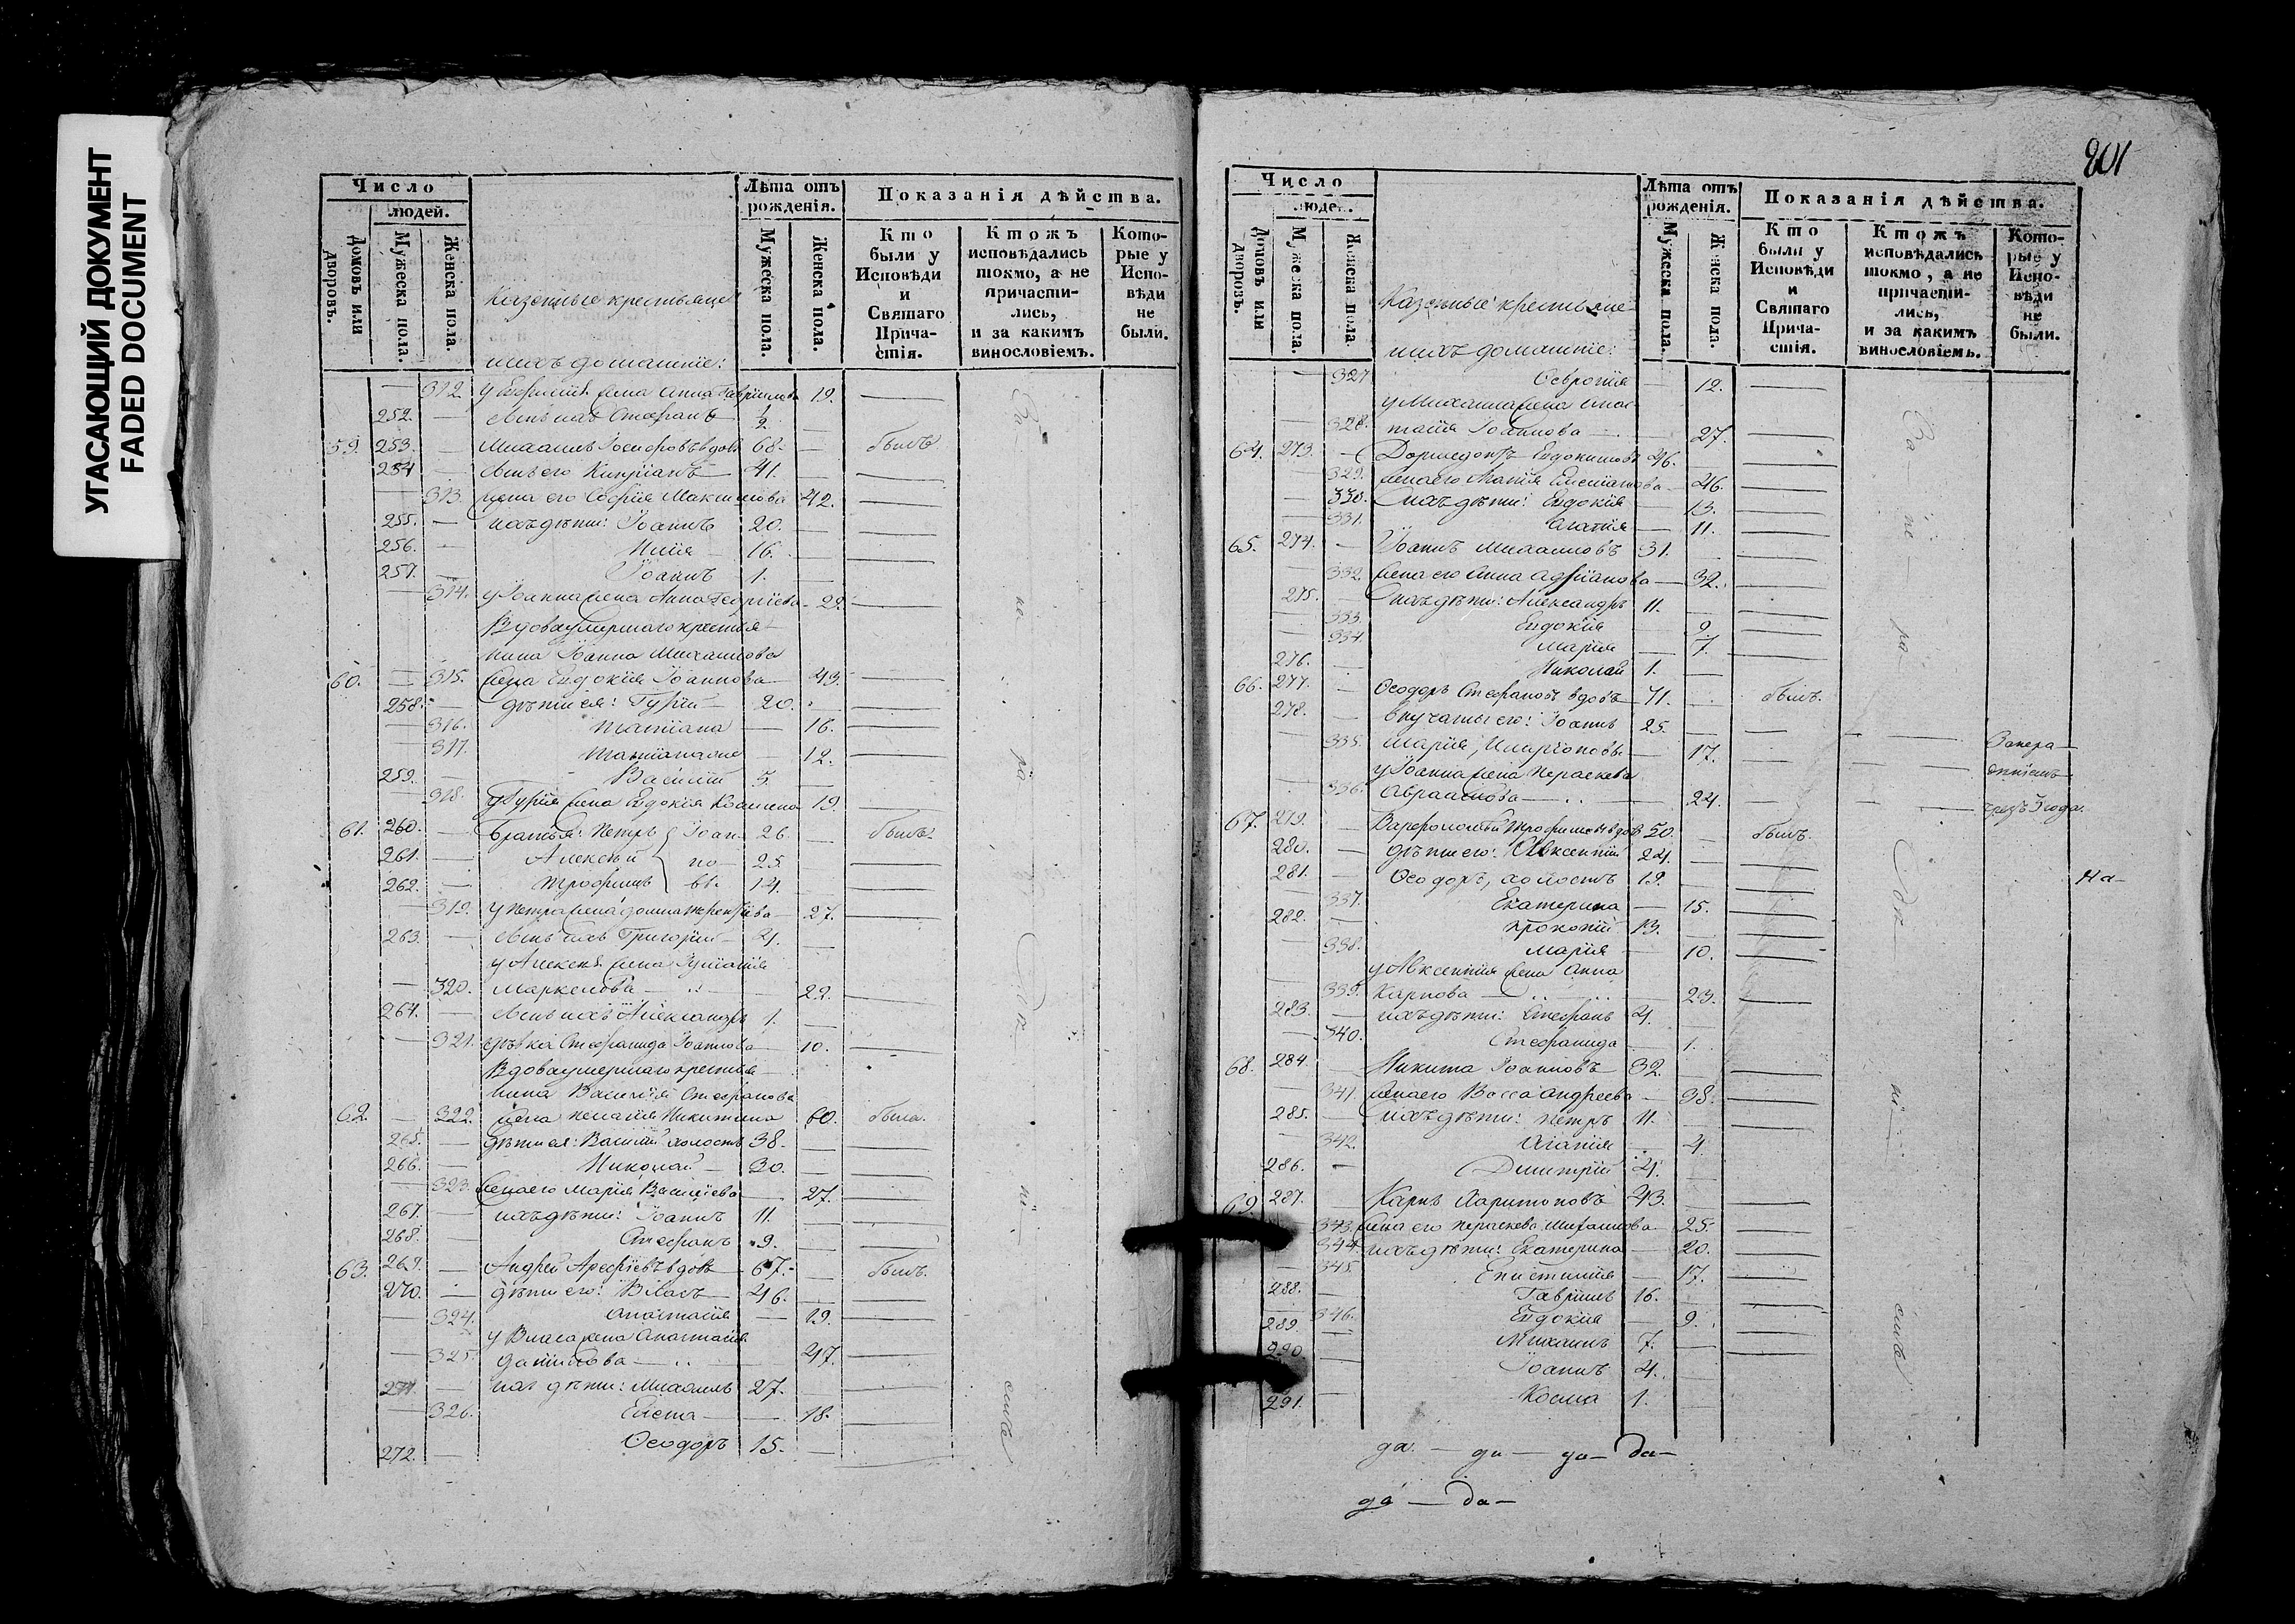 УГАСАЮЩИЙ ДОКУМЕНТ
FADED DOCUMENT
Число
людей.
Домовъ или дворовъ.
Мужеска пола.
Женска пола.
Казенные крестьяне
ихъ домашніе:
Лѣта отъ рожденія.
Мужеска пола.
Женска пола.
Показанія дѣйства.
Кто были у Исповѣди и Святаго Причастія.
Ктожъ исповѣдались токмо, а не причастились, и за какимъ винословіемъ.
Которые у Исповѣди не были.
312. жена Анна Гавріилова 19.
252. сынъ ихъ Стефанъ ½
59. 253. Михаилъ Іосифовъ вдовъ 68. былъ.
254 сынъ его Кипріанъ 41.
313. жена его Софія Максимова 42.
255. ихъ дѣти: Іоаннъ 20.
256. Илія 16.
257. Іоаннъ 1.
314. у Іоанна жена Анна Георгіева 22.
Вдова умершаго крестья-
нина Іоанна Михаилова
60. 315. жена Евдокія Іоаннова 43.
258. дѣти ея: Гурій 20.
316. Татіана 16.
317. Татіана же 12.
259. Василій 5.
318. у Гурія жена Евдокія 19.
61. 260. братья: Петръ Іоан- 26. былъ.
261. Алексѣй но- 25.
262. Трофимъ вы. 14.
319. у Петра жена Домна Терентіева 27.
263. сынъ ихъ Григорій 4.
у Алексѣя жена Іуліанія
320. Маркелова 22.
264. сынъ ихъ Александръ 1.
321. дѣвка Стефанида Іоаннова 10.
Вдова умершаго крестья-
нина Василія Стефанова
62. 322. жена Пелагія Никитина 60. была.
265. дѣти ея: Василій холостъ 38.
266. Николай 30.
323. жена его Марія Василіева 27.
267. ихъ дѣти: Іоаннъ 11.
268. Стефанъ 9.
63. 269. Андрей Арефіевъ вдовъ 67. былъ.
270. дѣти его: Власъ 46.
324. Анастасія 19.
у Власа жена Анастасія
325. Даніилова 47.
271. ихъ дѣти: Михаилъ 27.
326. 18.
272. Ѳеодоръ 15.
За не ра дѣ ні емъ
201
Число
людей.
Домовъ или дворовъ.
Мужеска пола.
Женска пола.
Казенные крестьяне
ихъ домашніе:
Лѣта отъ рожденія.
Мужеска пола.
Женска пола.
Показанія дѣйства.
Кто были у Исповѣди и Святаго Причастія.
Ктожъ исповѣдались токмо, а не причастились, и за какимъ винословіемъ.
Которые у Исповѣди не были.
327 Февронія 12.
у Михаила жена Анас-
328. тасія Іоаннова 27.
64. 273. Дормедонтъ Евдокимовъ 46.
329. жена его 46.
330. ихъ дѣти: Евдокія 13.
331. Агапія 11.
65. 274. Іоаннъ Михаиловъ 31.
332. жена его Анна Адріанова 32.
275. ихъ дѣти: Александръ 11.
333 Евдокія 9.
334. Марія 7.
276. Николай 1.
66. 277. Ѳеодоръ Стефановъ вдовъ 71. былъ.
278. внучаты его: Іоаннъ 25.
335. Марія, Иларіоновы 17. Занера-
у Іоанна жена Параскева дѣніемъ
336. Авраамова 24. чрезъ 3 года.
67. 279. Варѳоломѣй Трофимовъ вдовъ 50. былъ.
280. дѣти его: Авксентій 24.
281. Ѳеодоръ, холостъ 19.
337. Екатерина 15.
282. Прокопій 13.
338. Марія 10.
у Авксентія жена Анна
339. Карпова 23.
283. ихъ дѣти: Стефанъ 4.
340. Стефанида 1.
68. 284. Никита Іоанновъ 32.
341. жена его Васса Андреева 38.
285. ихъ дѣти: Петръ 11.
342. Агапія 4.
286. Димитрій 4.
69. 287. Карпъ Харитоновъ 43.
343. жена его Параскева Михаилова 25.
344. ихъ дѣти: Екатерина 20.
345. Епистимія 17.
288. Гавріилъ 16.
346. Евдокія 9.
289. Михаилъ 7.
290. Іоаннъ 4.
291. Косма 1.
За не ра дѣ ні емъ
На-
да — да — да — да —
да — да —